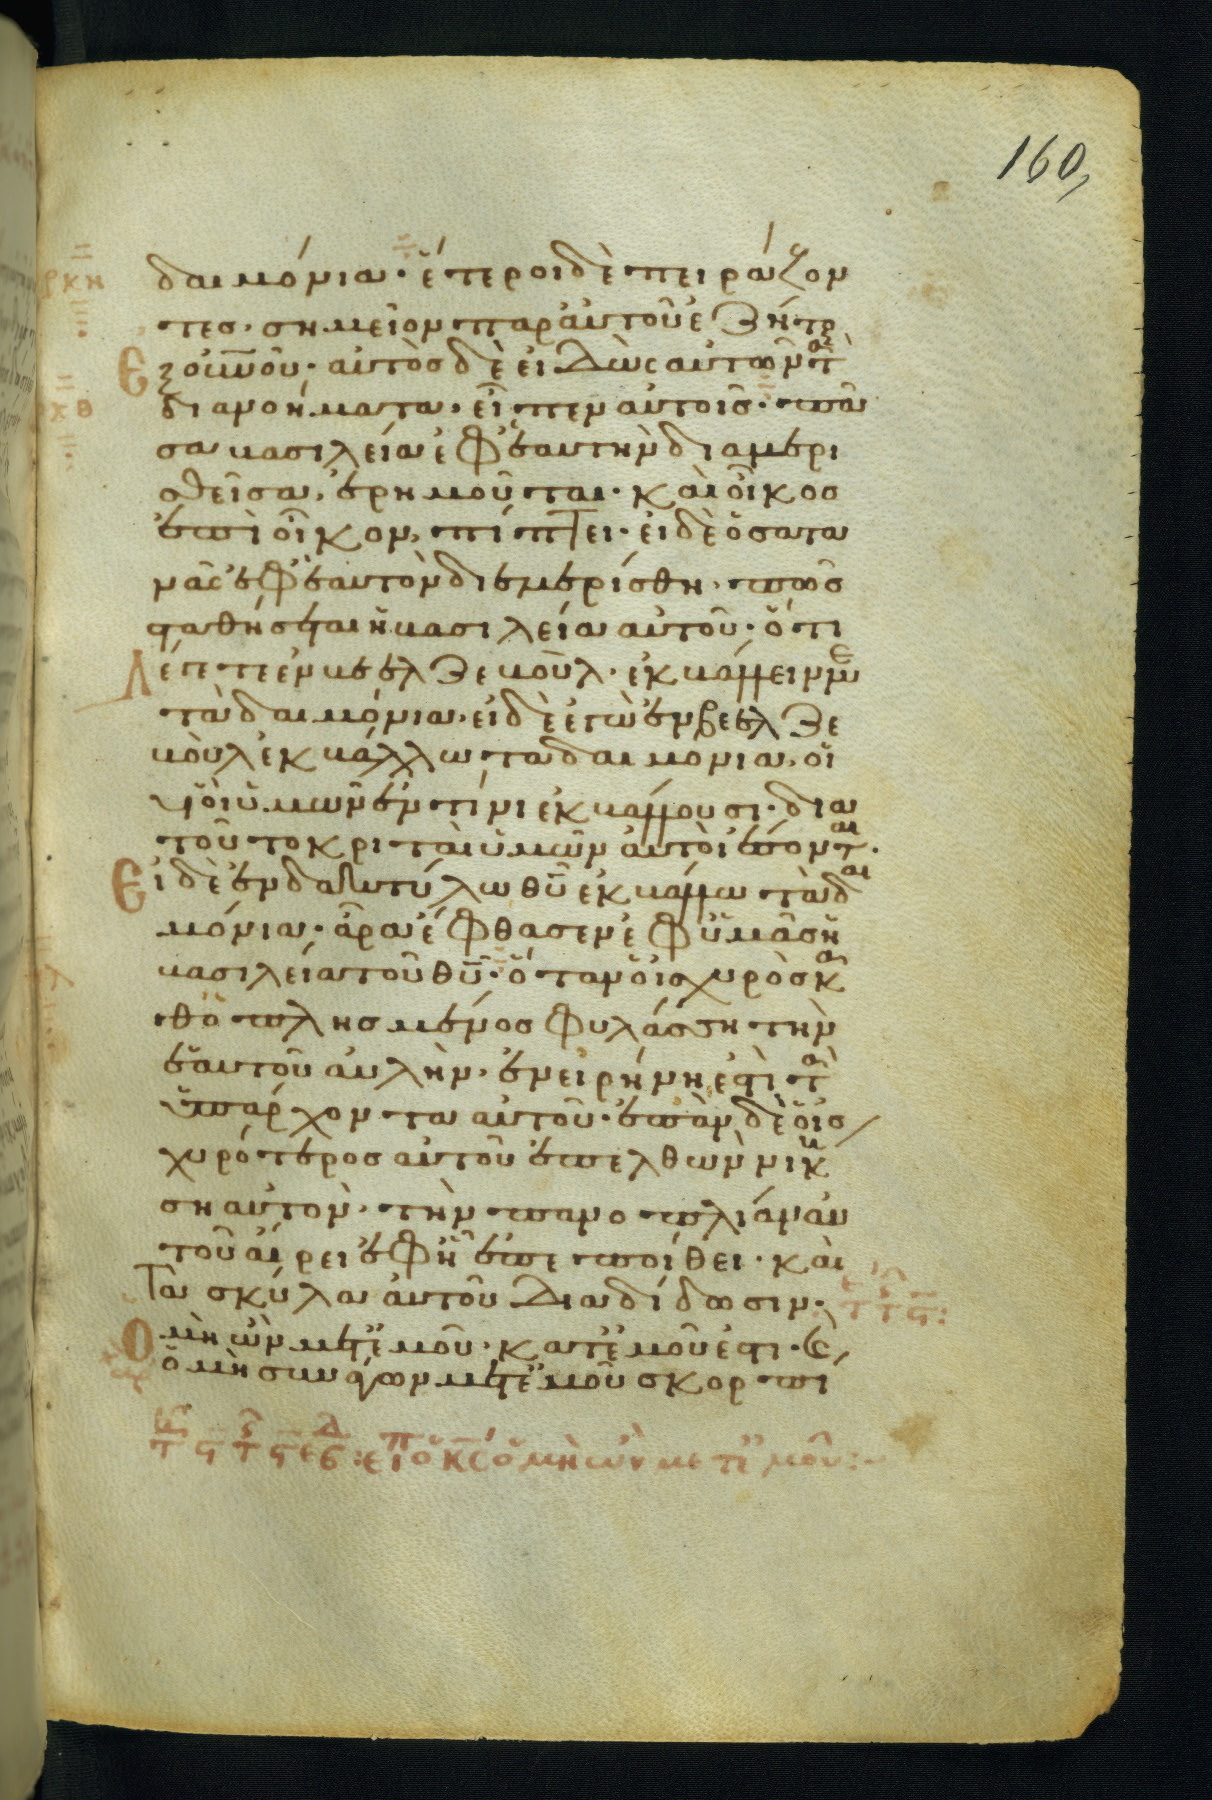 160
ρκη
δαιμόνια· ἕτεροι δὲ πειράζον
τες· σημεῖον παρ' αὐτοῦ ἐζήτουν
ἐξ οὐνοῦ· αὐτὸς δὲ εἰδὼς αὐτῶν τὰ
ρκθ
διανοήματα· εἶπεν αὐτοῖς· πᾶ
σα βασιλεία ἐφ' ἑαυτὴν διαμερι
σθεῖσα, ἐρημοῦται· καὶ οἶκος
ἐπὶ οἶκον, πίπτει· εἰ δὲ ὁ σατα
νᾶς ἐφ' ἑαυτὸν διεμερίσθη· πῶς
σταθήσεται ἡ βασιλεία αὐτοῦ· ὅτι
λέγετε ἐν βεελζεβοὺλ· ἐκβάλλειν με
τὰ δαιμόνια· εἰ δὲ ἐγὼ ἐν βεελζε
βοὺλ ἐκβάλλω τὰ δαιμόνια, οἱ
υἱοὶ ὑμῶν ἐν τίνι ἐκβάλλουσι· δια
τοῦτο κριταὶ ὑμῶν αὐτοὶ ἔσονται·
Εἰ δὲ ἐν δακτύλω θῦ ἐκβάλλω τὰ δαι
μόνια· ἄρα ἔφθασεν ἐφ' ὑμᾶς ἡ
βασιλεία τοῦ θῦ· ὅταν ὁ ἰσχυρὸς κα
θοπλησμένος φυλάσση τὴν
ἑαυτοῦ αὐλὴν· ἐν εἰρήνη ἐστὶ τὰ
ὑπάρχοντα αὐτοῦ· ἐπὰν δὲ ὁ ἰσ
χυρότερος αὐτοῦ ἐπελθὼν νική
ση αὐτὸν· τὴν πανοπλίαν αὐ
τοῦ αἴρει ἐφ' ᾗ ἐπεποίθει· καὶ
τὰ σκύλα αὐτοῦ διαδίδωσιν·
Ὁ μὴ ὢν μετ' ἐμοῦ· κατ' ἐμοῦ ἐστι· καὶ
ὁ μὴ συνάγων μετ' ἐμοῦ σκορπί
εἶπ ὁ κς ὁ μὴ ὢν μετ' ἐμοῦ: